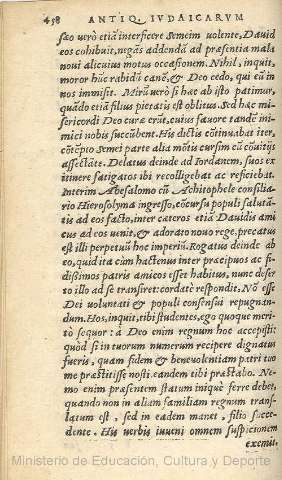 458 ANTIQ. IVDAICARVM
sæo verò etiã interficere Semeim volente, Dauid
eos cohibuit, negãs addendã ad præsentia mala
noui alicuius motus occasionem. Nihil, inquit,
moror hũc rabidã canẽ, & Deo cedo, qui eũ in
nos immisit. Mirũ verò si hac ab isto patimur,
quãdo etiã filius pietatis est oblitus. Sed hæc mi-
sericordi Deo curæ erũt, cuius fauore tandẽ ini-
mici nobis succũbent. His dictis cõtinuabat iter,
cõtẽpto Semei parte alia mõtis cursim cũ cõuitijs
assectãte. Delatus deinde ad Iordanem, suos ex
itinere fatigatos ibi recolligebat ac reficiebat.
Interim Abesalomo cũ Achitophele consilia-
rio Hierosolyma ingresso, cõcursu populi salutã-
tis ad eos facto, inter cæteros etiã Dauidis ami
cus ad eos venit, & adorato nouo rege, precatus
est illi perpetuũ hoc imperiũ. Rogatus deinde ab
eo, quid ita cùm hactenus inter præcipuos ac fi-
dissimos patris amicos esset habitus, nunc deser
to illo ad se transiret: cordatè respondit, Nõ esse
Dei voluntati & populi consensui repugnan-
dum. Hos, inquit, tibi studentes, ego quoque meri-
tò sequor: à Deo enim regnum hoc accepisti:
quòd si in tuorum numerum recipere dignatus
fueris, quam fidem & beneuolentiam patri tuo
me præstitisse nosti: eandem tibi præstabo. Ne-
mo enim præsentem statum iniquè ferre debet,
quando non in aliam familiam regnum trans-
latum est, sed in eadem manet, filio succe-
dente. His verbis iuueni omnem suspicionem
exemit.
Ministerio de Educación, Cultura y Deporte